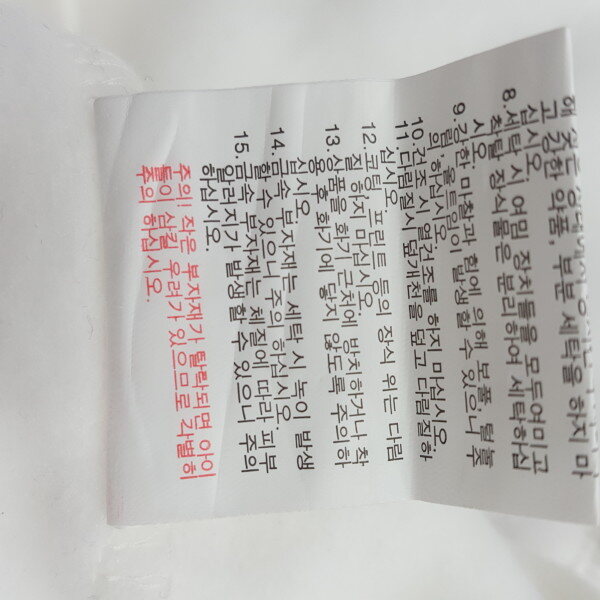 고 강한 약품, 부분 세탁을 하지 마
십시오.
8.세탁 시 여밈 장치들을 모두여미고
착탈 장식물은 분리하여 세탁하십
시오.
9.강한 마찰과 힘에 의해 보풀, 털뽑
림, 올트임이 발생할 수 있으니 주
의 하십시오.
10.건조 시 열건조를 하지 마십시오.
11.다림질시 덮개천을 덮고 다림질하
십시오
12.코팅, 프린트 등의 장식 위는 다림
질 하지 마십시오.
13.상품을 화기 근처에 방치하거나 착
용 후 화기에 닿지 않도록 주의하
십시오
14.금속 부자재는 세탁 시 녹이 발생
할 수 있으니 주의 하십시오.
15.금속 부자재는 체질에 따라 피부
알러지가 발생할 수 있으니 주의
하십시오.
주의! 작은 부자재가 탈락되면 아이
들이 삼킬 우려가 있으므로 각별히
주의 하십시오.